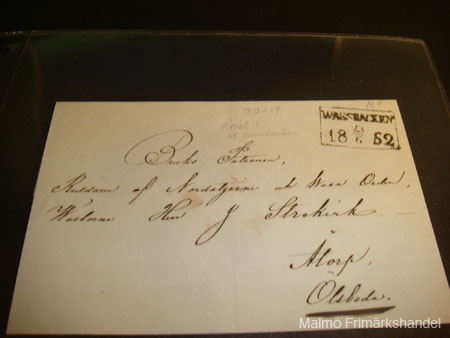 WASSBACKEN
18 23/6 52
Bruks Patronen,
Riddaren af Nordstjerne och Wasa Orden,
Herr J Strokirk
Atorp.
Olsboda.
Malmö Frimärkshandel